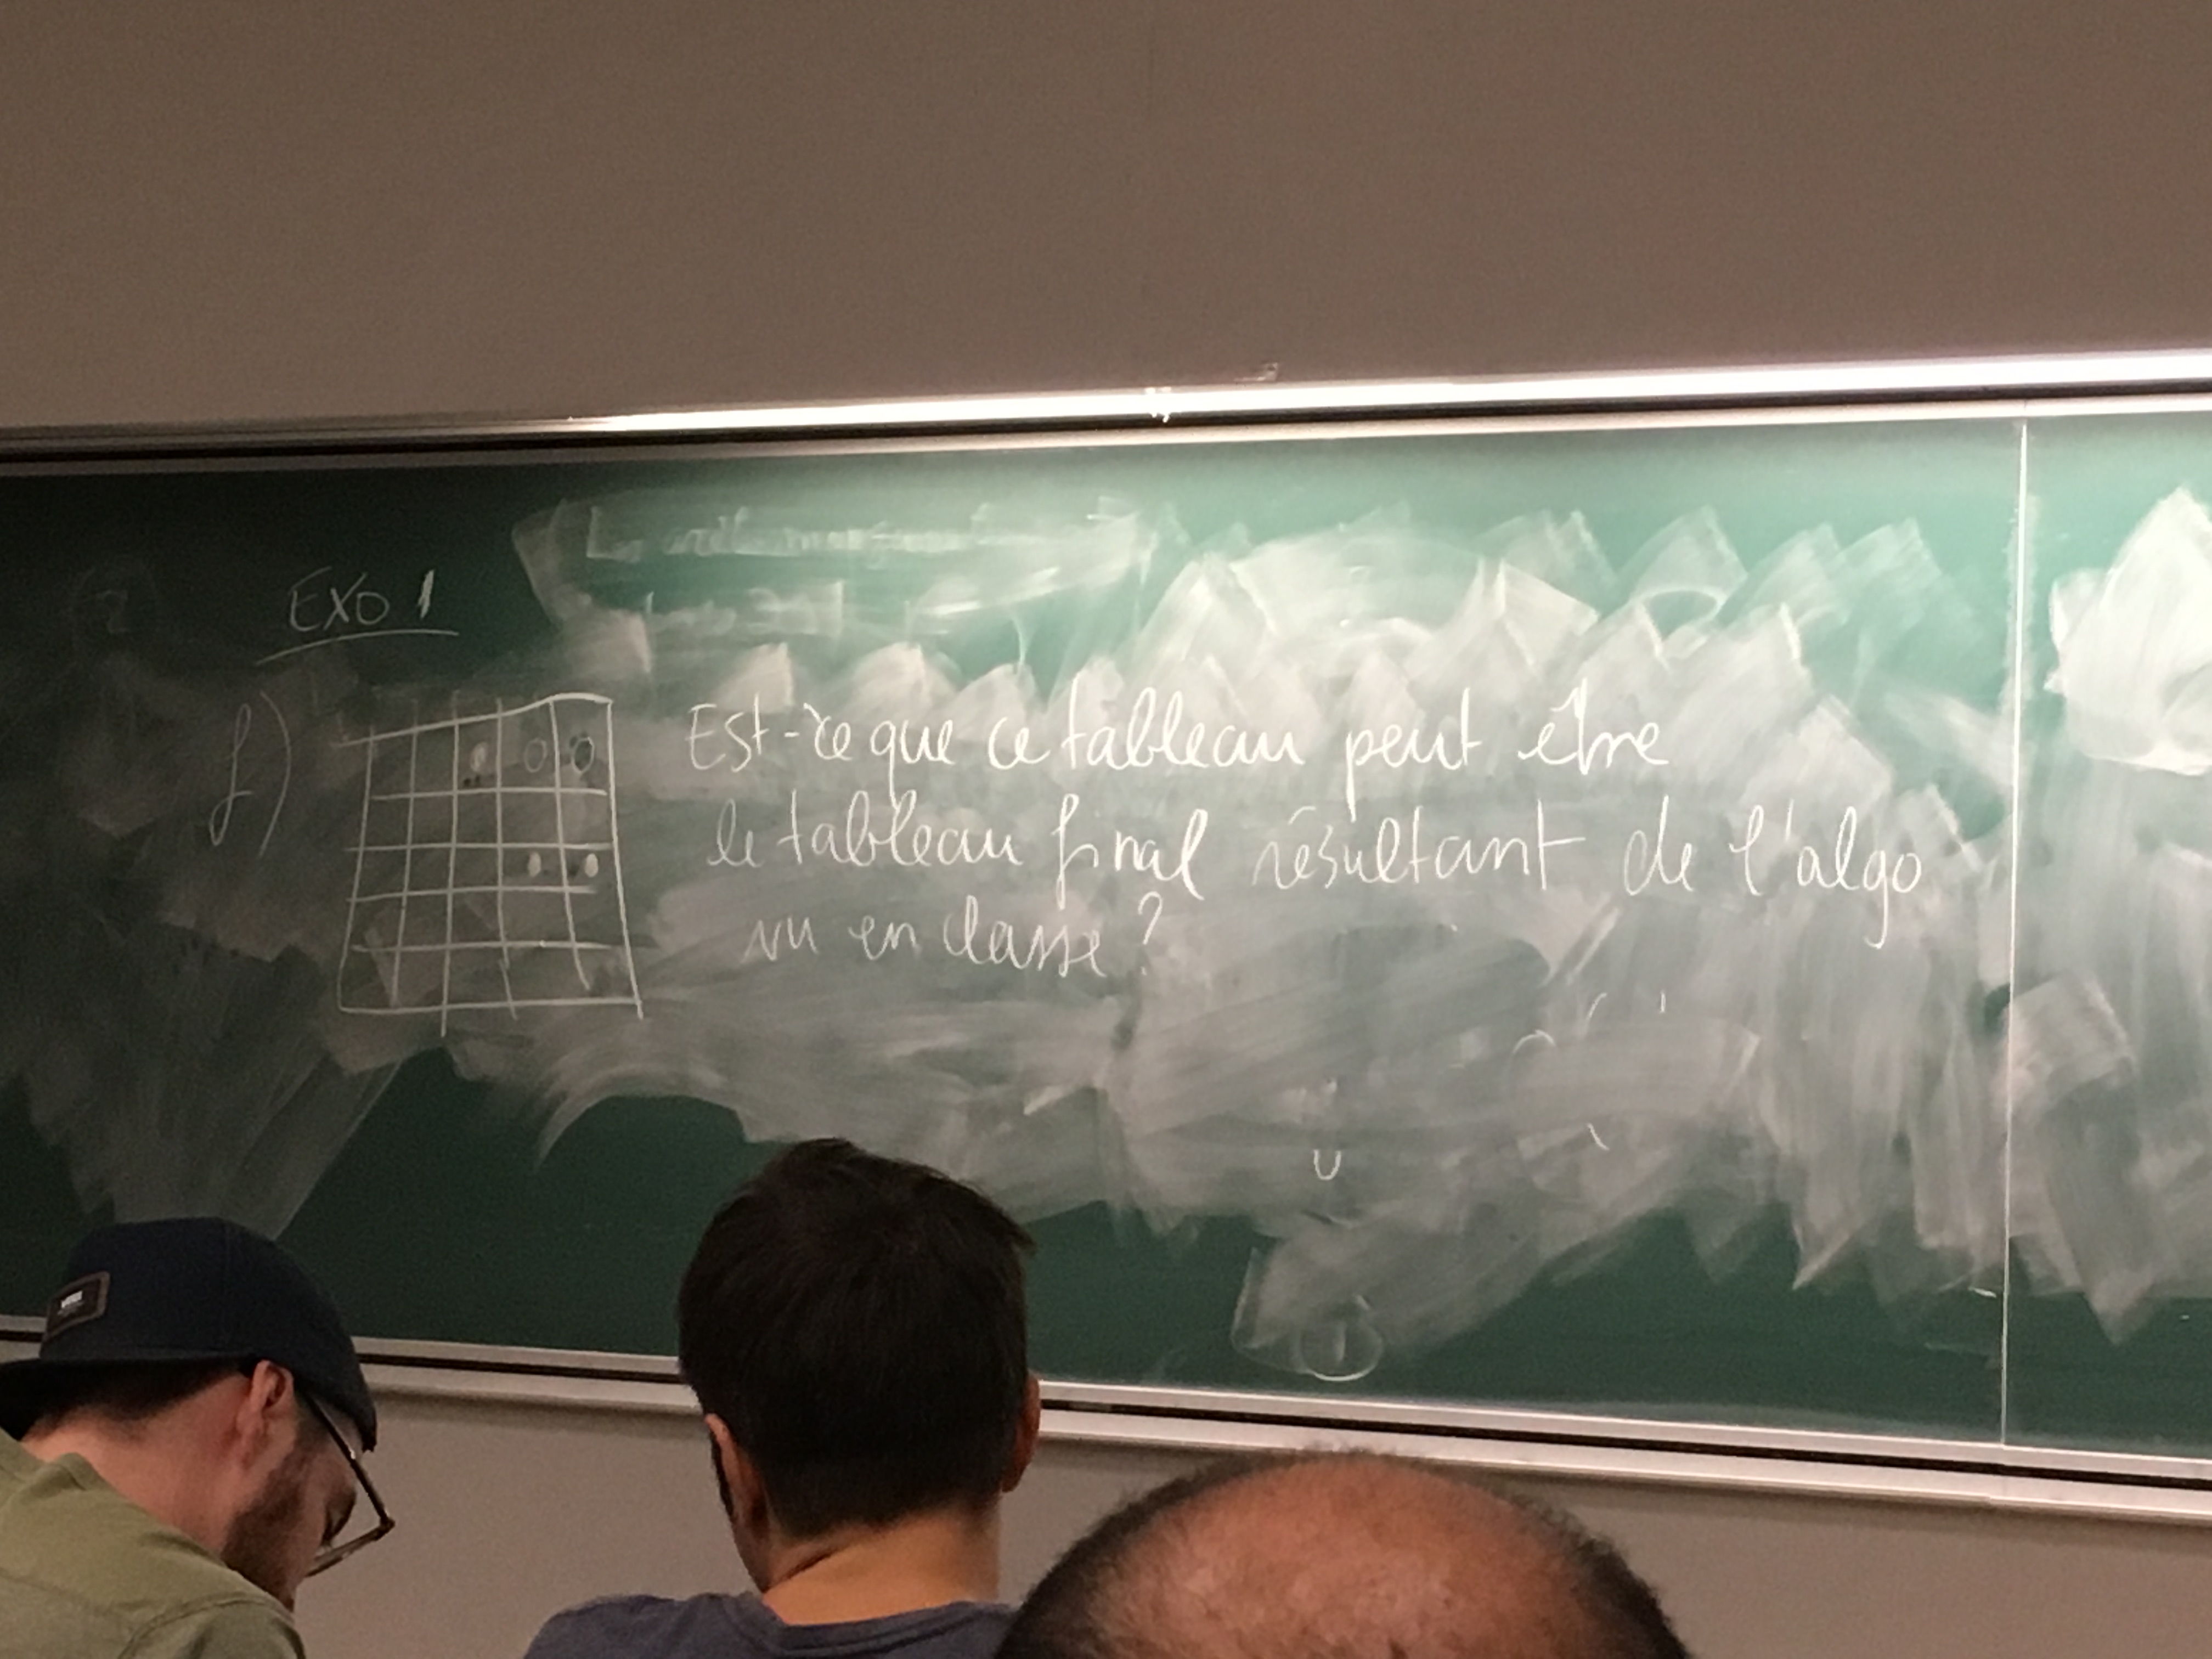 EXO 1
f)
Est-ce que ce tableau peut être
le tableau final résultant de l'algo
vu en classe ?